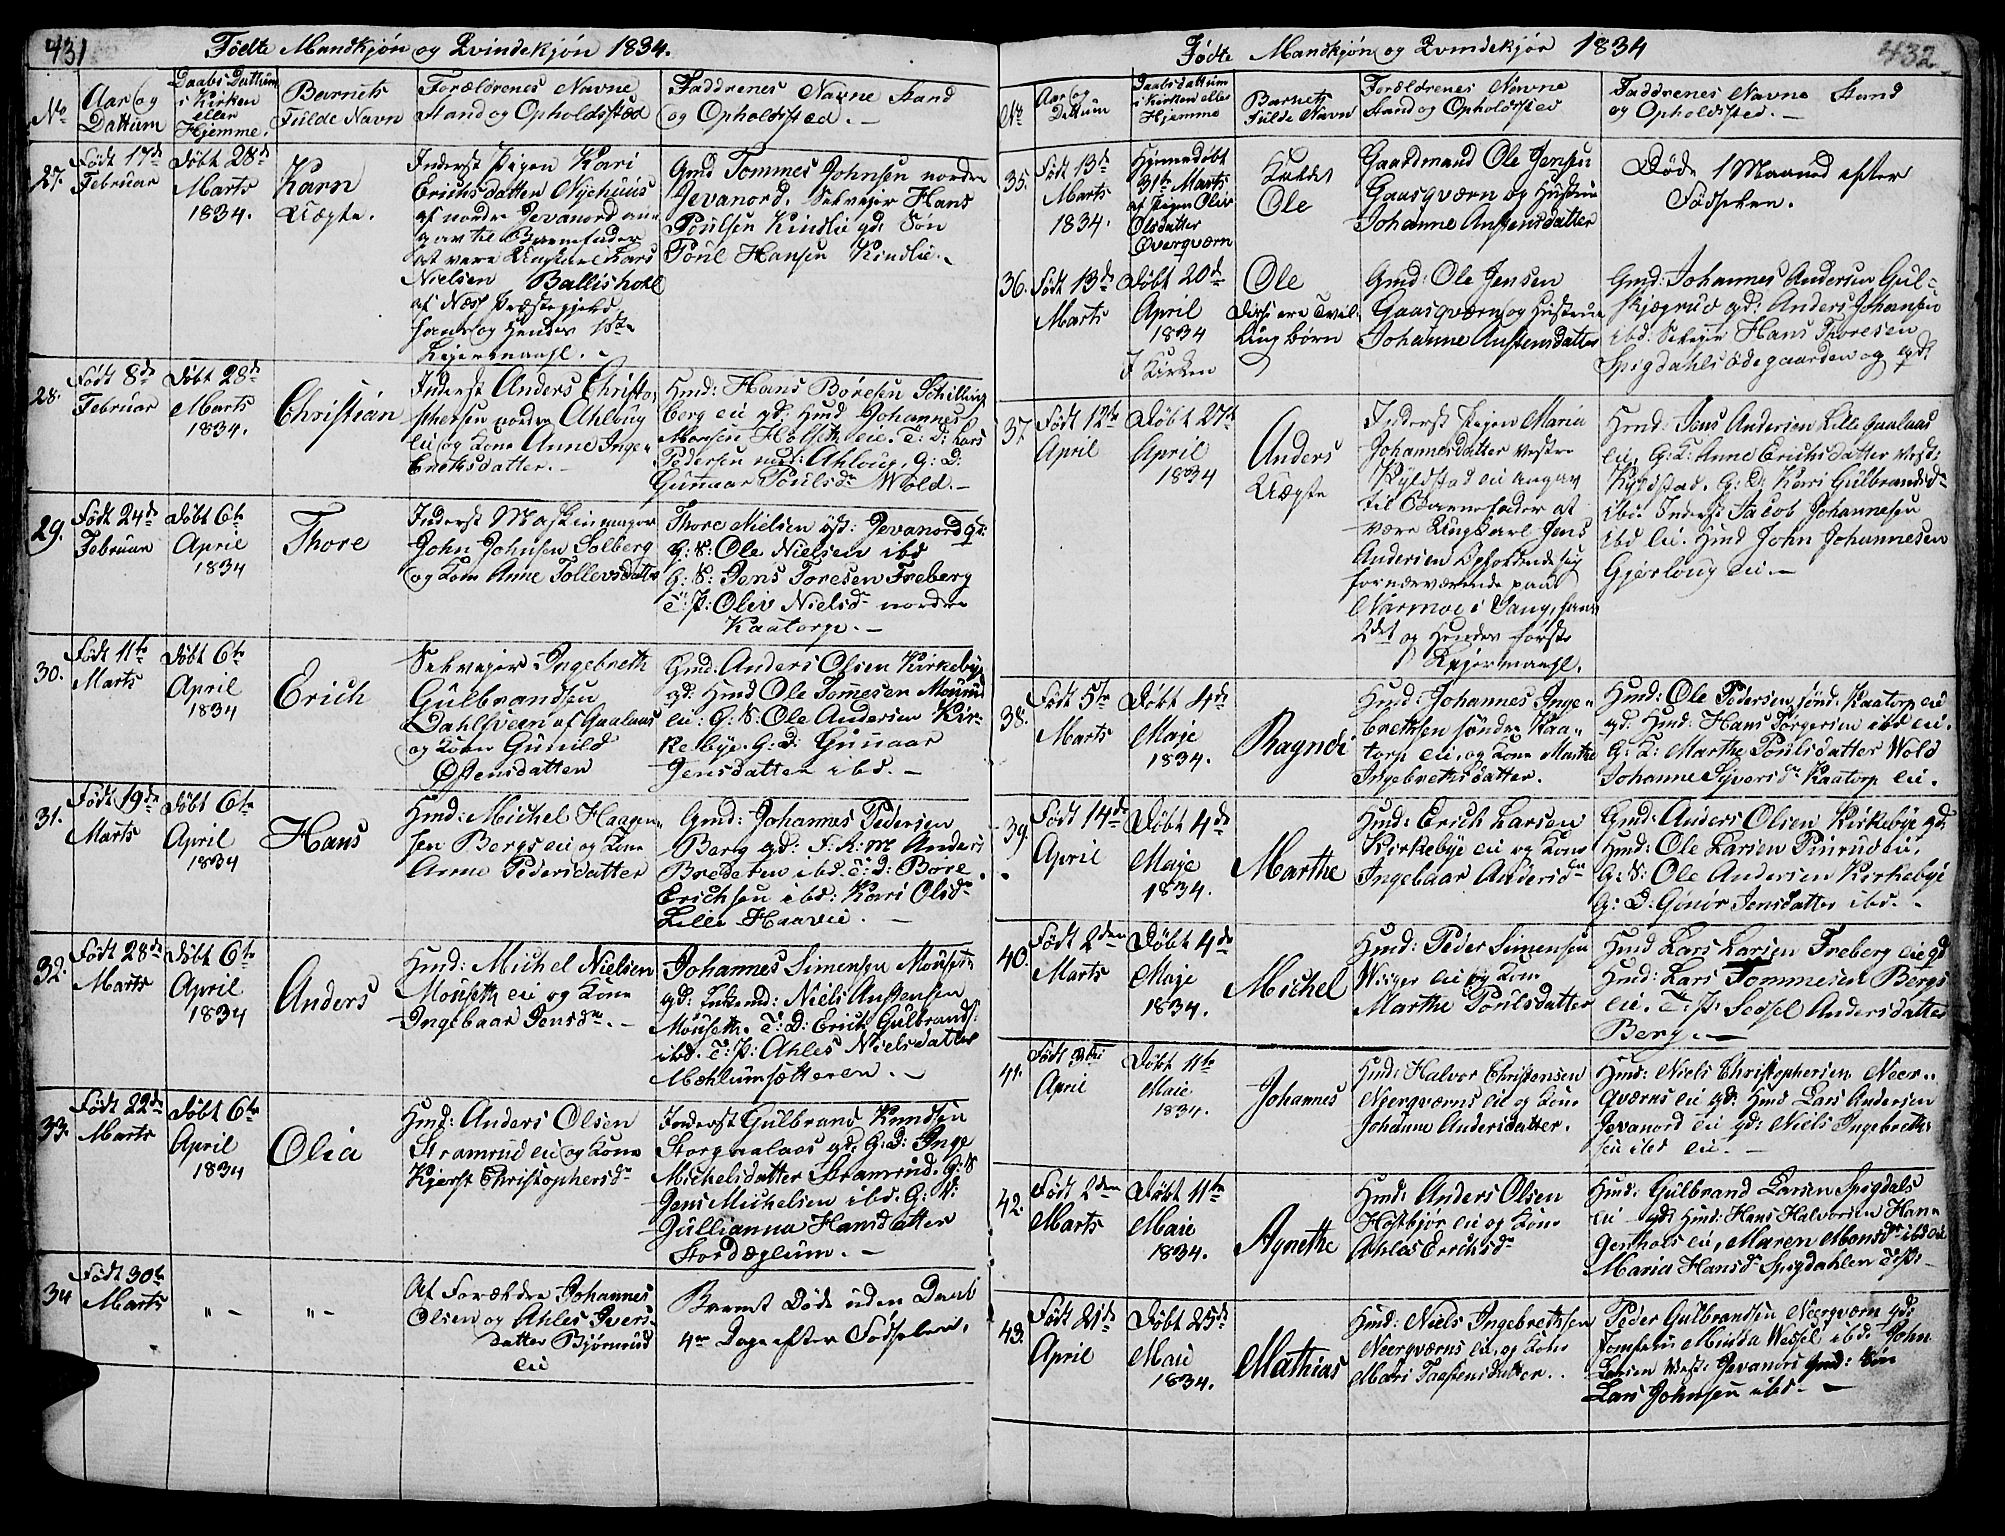 431
Fødte Mandkjøn og Qvindekjøn 1834.
No
Aar og
Dattum
Daabs Dattum
i Kirken
eller
Hjemme.
Barnets
Fulde Navn
Forældrenes Navne
Stand og Opholdssted
Faddrenes Navne Stand
og Opholdsted.
27.
Født 17de
Februar
Døbt 28de
Marts
1834.
Karn
Uægte.
Inderst Pigen Kari
Erichsdatter Nyehuus
af nordre Jevanord an-
gav til Barnefader
at være Ungkarl Lars
Nielsen Ballishohl
af Næs Præstegjeld
hans og hendes 1ste
Leiermaahl.
Gmd Tommes Johnsen nordre
Jevanord. Selveier Hans
Poulsen Kindlie gd: Søn
Poul Hansen Kindlie.
28.
Født 8de
Februar
Døbt 28de
Marts
1834.
Christian
Inderst Anders Christo-
phersen nordre Ahloug
eie og Kone Anne Inge-
Erichsdatter.
Hmd: Hans Børesen Schilling
berg eie gd: Hmd Johannes
Monsen Holseth eie. T: D: Lars
Pedersen nord: Ahloug. G: D:
Gunaar Poulsdr Wold.
29.
Født 24de
Februar
Døbt 6te
April
1834
Thore
Inderst Maskinmager
John Johnsen Solberg
og Kone Anne Tollevsdatter
Thore Nielsen Jevanord gd:
G: S: Ole Nielsen ibd
G: S: Jens Toresen Freberg
T: P: Oliv Nielsdr nordre
Kaatorp.
30.
Født 11te
Marts
Døbt 6te
April
1834
Erich
Selveier Ingebreth
Gulbrandsen
Dahlsveen af Gaalaas
og Kone Gunild
Østensdatter
Gmd: Anders Olsen Kirkebye
gd: Hmd Ole Tomesen
eie: G: S: Ole Andersen Kir-
kebye. G: D: Gunaar
Jensdatter ibd.
31.
Født 19de
Marts
Døbt 6te
April
1834
Hans
Hmd: Michel Haagen-
sen Bergs eie og Kone
Anne Pedersdatter
Gmd: Johannes Pedersen
Berg gd: Anders
Bredesen ibd. T: D: Børe
Erichsen ibd: Kari Olsdr
Lille Haavie.
32.
Født 28de
Marts
Døbt 6te
April
1834
Anders
Hmd: Michel Nielsen
Mouseth eie og Kone
Ingebaar Jensdr.
Johannes Simensen Mouset
gd: Niels Austensen
Mouseth. T: D: Erich Gulbrands:
ibd. T: P: Ahles Nielsdatter
Mæhlumsætteren.
33.
Født 22de
Marts
Døbt 6te
April
1834
Olia
Hmd: Anders Olsen
Stramrud eie og Kone
Kjerst Christophersdr
Inderst Gulbrand Knudsen
Storgaalaas gd: G: D: Inge
Michelsdatter Stramrud. G: S
Jens Michelsen ibd. G: D:
Jullianna Hansdatter
Stordæglum.
34
Født 30te
Marts
" -
" -
Af Forældre Johannes
Olsen og Ahles Ivers-
datter Bjørnerud
eie
Barnet Døde uden Daab
4re Dage efter Fødselen.
432
Fødte Mandkjøn og Qvindekjøn 1834
No
Aar og
Dattum
Daabsdattum
i Kirken eller
Hjemme
Barnets
Fulde Navn
Forældrenes Navne
Stand og Opholdssted
Faddrenes Navne Stand
og Opholdsted.
35.
Født 13de
Marts
1834.
Hjemmedøbt
31te Marts
af Pigen Oliv
Olsdatter
Overqværn
Kaldet
Ole
Gaardmand Ole Jensen
Gaasqværn og Hustrue
Johanne Austensdatter
Døde 1 Maaned efter
Fødselen.
36.
Født 13de
Marts
Døbt 20de
April
1834
I Kirken
Ole
Disse ere Tvil-
lingbørn
Gmd: Ole Jensen
Gaasqværn og Hustrue
Johanne Austensdatter
Gmd: Johannes Andersen Gul-
skjøgrud gd: Anders Johansen
ibd. Selveier Hans Thoresen
Spigdahlsødegaarden og gd:
37.
Født 12te
April
Døbt 27de
April
1834
Anders
Uægte
Inderst Pigen Maria
Johannesdatter vestre
Kyldstad eie angav
til Barnefader at
være Ungkarl Jens
Andersen Opholdende sig
fornærværende paa
Narmoe i Vang, hans
2det og hendes første
Leiermaahl.
Hmd: Jens Andersen Lille Gaalaas
eie, G: K: Anne Erichsdatter vest:
Kyldstad. G: D: Kari Gulbrandsdr
ibd: Inderst Jacob Johannesen
ibd eie. Hmd John Johannesen
Gjørloug eie.
38.
Født 5te
Marts
Døbt 4de
Maje
1834.
Ragndi
Hmd: Johannes Inge-
brethsen søndre Kaa-
torp eie, og Kone Marthe
Ingebrethsdatter.
Hmd: Ole Pedersen sønd: Kaatorp eie
gd: Hmd: Hans Torgersen ibd eie.
G: K: Marthe Poulsdatter Wold
Johanne Syversdr Kaatorp eie.
39.
Født 14de
April
Døbt 4de
Maje
1834.
Marthe
Hmd: Erich Larsen
Kirkebye eie og Kone
Ingebaar Andersdr
Gmd: Anders Olsen Kirkebye gd:
Hmd: Ole Larsen Pinrud eie,
G: S: Ole Andersen Kirkebye
G: D: Gunør Jensdatter ibd.
40.
Født 2den
Marts
Døbt 4de
Maje
1834.
Michel
Hmd: Peder Simensen
Wisser eie og Kone
Marthe Poulsdatter
Hmd Lars Larsen Freberg eie gd
Hmd: Lars Tommesen Bergs
eie. T: P: Sedsel Andersdatter
Berg.
41.
Født 3die
April
Døbt 11te
Maie
1834.
Johannes
Hmd: Halvor Christensen
Neerqværns eie og Kone
Johanne Andersdatter.
Hmd: Niels Christophersen Neer-
qværns eie gd: Hmd Lars Andersen
Jevanord eie gd: Niels Ingebreth-
sen ibd eie.
42.
Født 2den
Marts
Døbt 11te
Maie
1834.
Agnethe
Hmd: Anders Olsen
Hostbjør eie og Kone
Ahles Erichsdr
Hmd: Gulbrand Larsen Spigdals
eie gd: Hmd: Hans Halvorsen Hann
genhols eie, Maren Monsdr ibd eie
Maria Hansdr Spigdahlen T: P:
43.
Født 21de
April
Døbt 25de
Maie
1834.
Mathias
Hmd: Niels Ingebrethsen
Neerqværns eie, og Kone
Mari Tostensdatter.
Peder Gulbrandsen Neerqværn gd:
Jomfrue Wessel ibd: John
Larsen vest: Jevanord gmd: Søn
Lars Johnsen ibd.